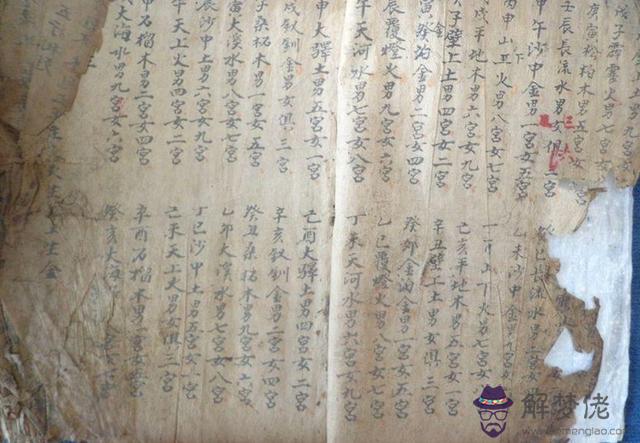 戊子霹靂火男七宮女
庚寅松柏木男二宮女四宮
壬辰長流水男女俱三宮
三六
甲午沙中金男一宮女五宮
丙申山下火男八宮女七宮
戊戌平地木男六宮女九宮
子壁上土男四宮女二宮
寅金泊金男二宮女四宮
辰覆燈火男九宮女六宮
午天河水男七宮女八宮
申大驛土男五宮女一宮
戌釵釧金男女俱三宮
子桑柘木男一宮女五宮
大溪水男八宮女七宮
辰沙中土男六宮女九宮
午天上火男四宮女二宮
申石榴木男二宮女四宮
大海水男九宮女六宮
巳長流水男二宮女
乙未沙中金男九宮女
火男七宮女
己亥平地木男五宮女一
辛丑壁上土男女俱三宮
癸卯金泊金男一宮女五宮
乙巳覆燈火男八宮女七宮
丁未天河水男六宮女九宮
己酉大驛土男四宮女二宮
辛亥釵釧金男二宮女四宮
癸丑桑柘木男九宮女六宮
乙卯大溪水男七宮女八宮
丁巳沙中土男五宮女一宮
己未天上火男女俱三宮
辛酉石榴木男一宮女五宮
癸亥大海水男八宮女七宮
解梦佬
www.jiemenglao.com